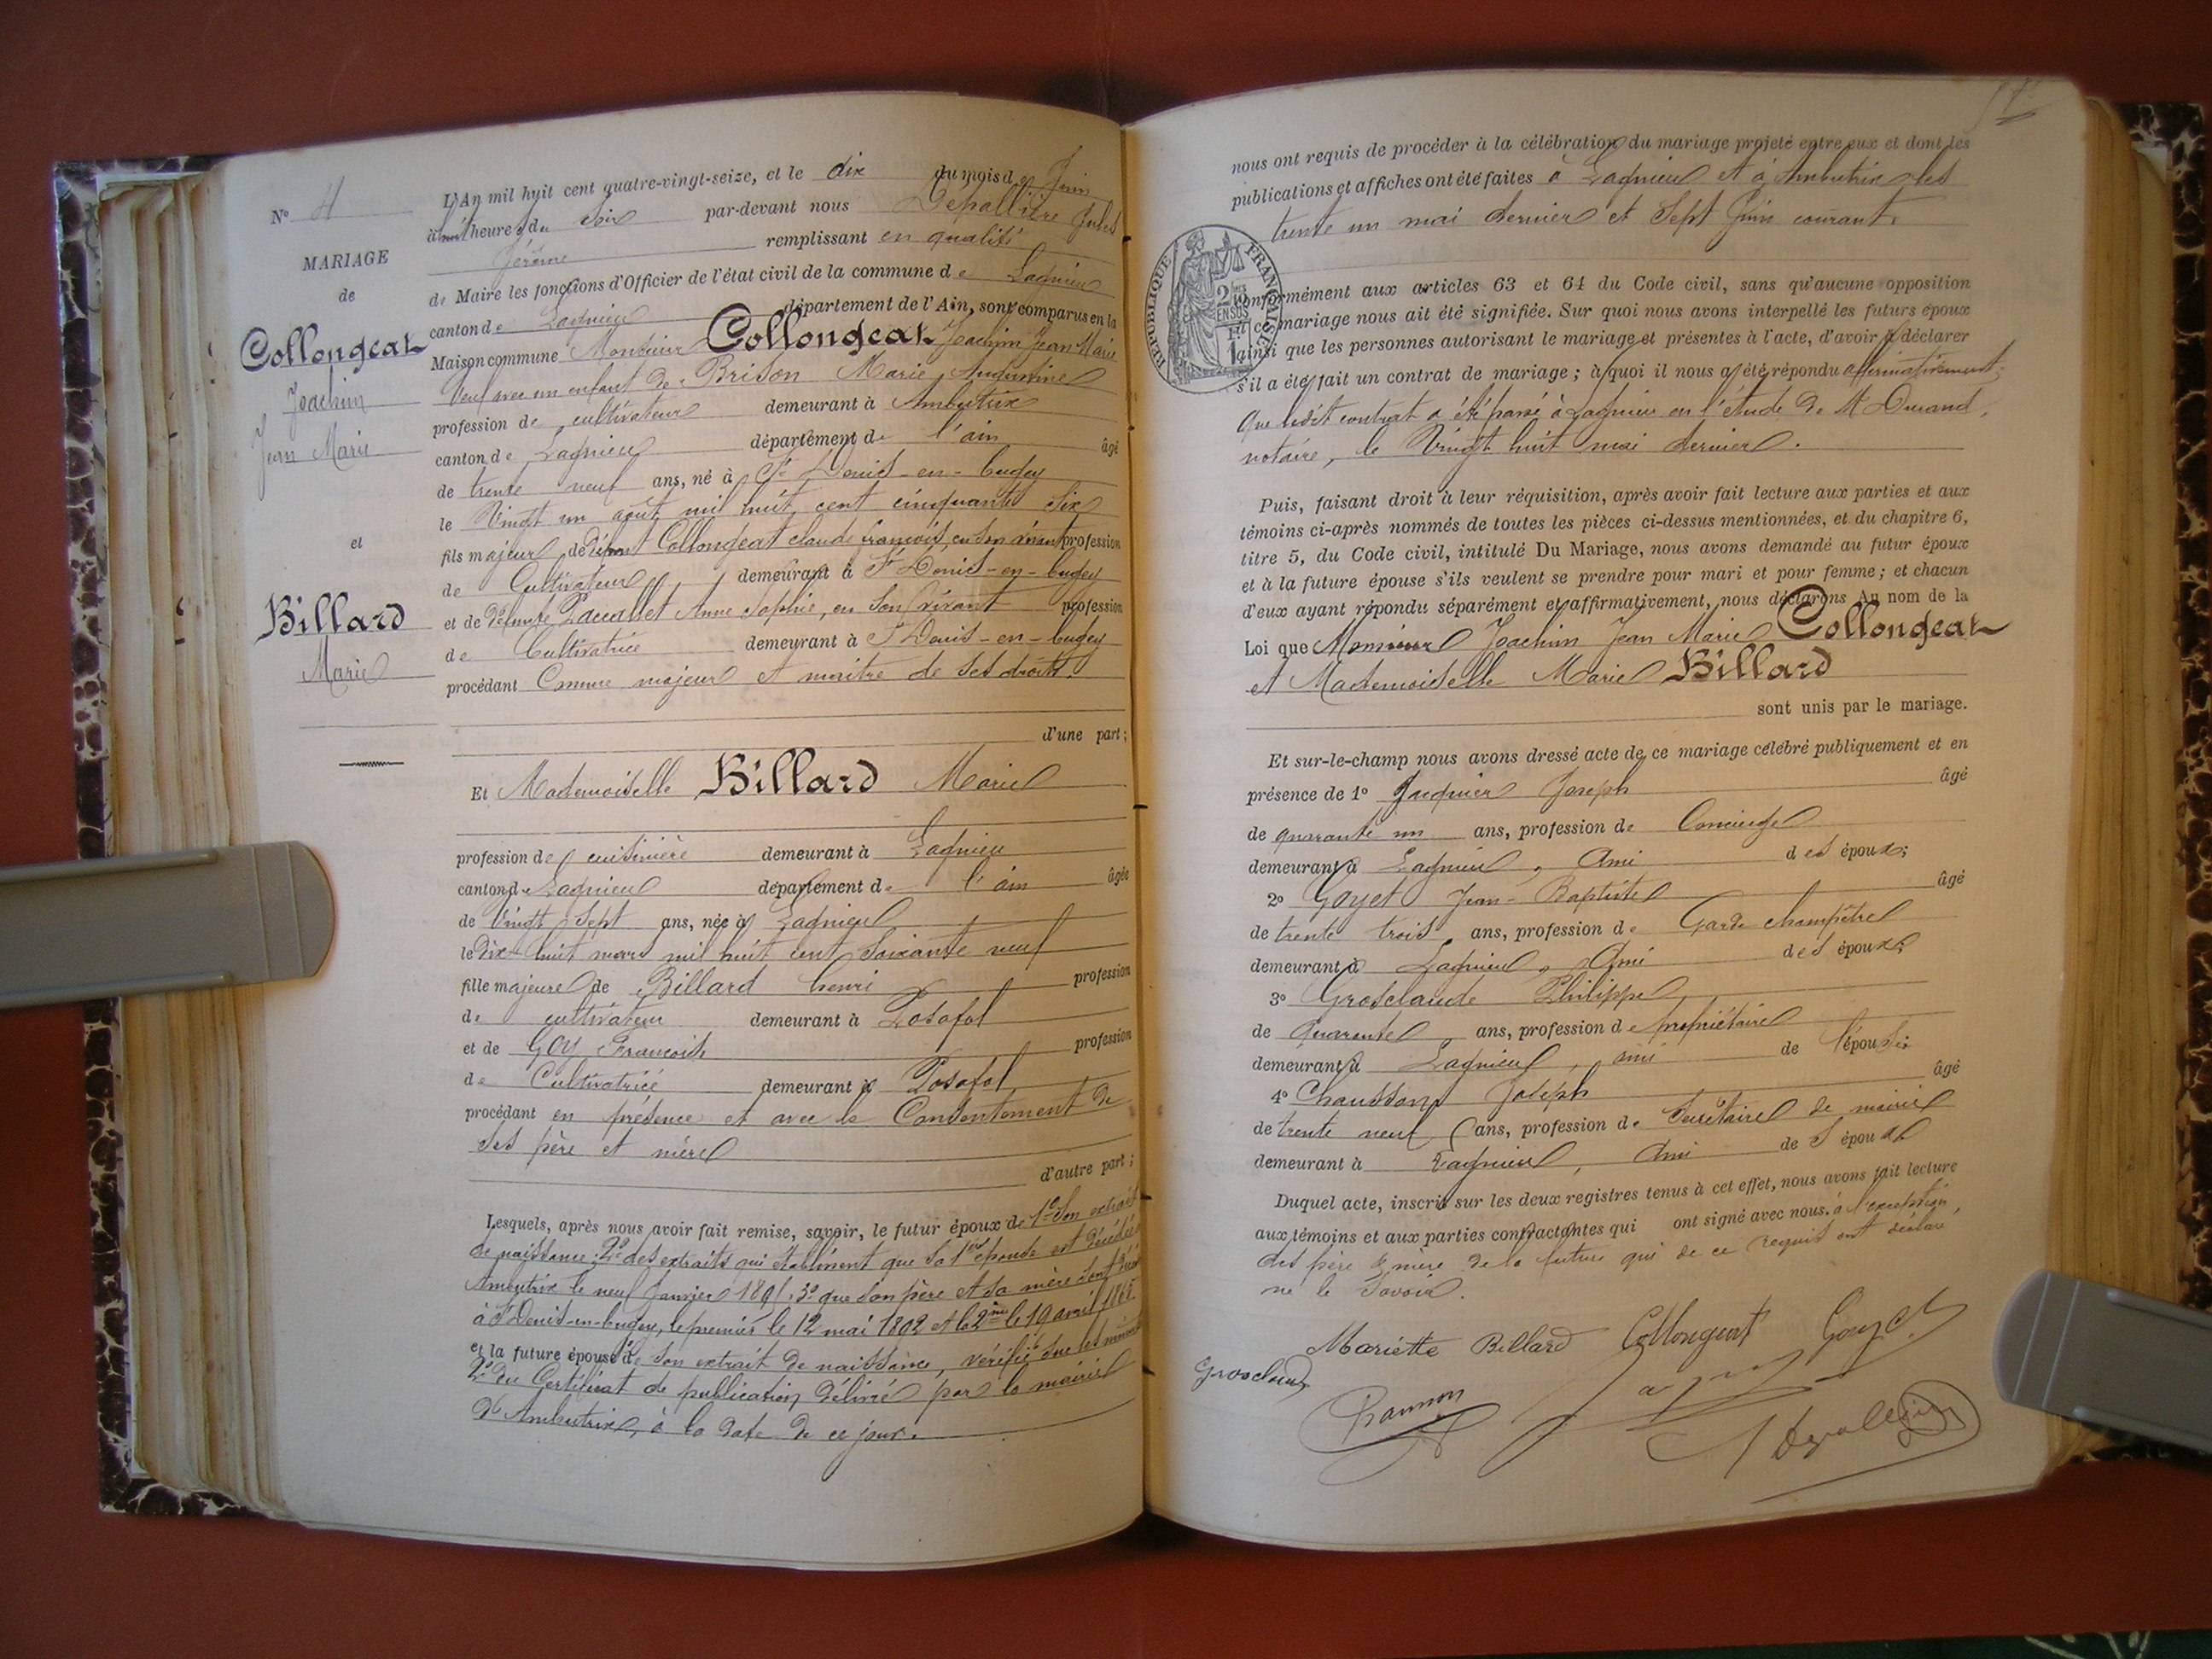 N° 4
MARIAGE
de
Collongeat
Joachim
Jean Marie
et
Billard
Marie
L'An mil huit cent quatre-vingt-seize, et le dix du mois de Juin
à huit heures du soir par-devant nous Depallière Jules
Jérôme remplissant en qualité
de Maire les fonctions d'Officier de l'état civil de la commune de Lagnieu
canton de Lagnieu département de l'Ain, sont comparus en la
Maison commune Monsieur Collongeat Joachim Jean Marie
Veuf avec un enfant de Brison Marie Augustine
profession de cultivateur demeurant à Ambutrix
canton de Lagnieu département de l'ain âgé
de trente neuf ans, né à St Denis-en-bugey
le Vingt un août mil huit cent cinquante six
fils majeur de défunt Collongeat claude françois, en son vivant profession
de Cultivateur demeurant à St Denis-en-bugey
et de défunte Anne Sophie, en son vivant profession
de Cultivatrice demeurant à St Denis-en-bugey
procédant Comme majeur et maître de ses droits
d'une part;
Et Mademoiselle Billard Marie
profession de cuisinière demeurant à Lagnieu
canton de Lagnieu département de l'ain âgée
de Vingt sept ans, née à Lagnieu
le dix-huit mars mil huit cent soixante neuf
fille majeure de Billard henri profession
de cultivateur demeurant à Posafol
et de Goy Françoise profession
de Cultivatrice demeurant à Posafol
procédant en présence et avec le Consentement de
ses père et mère
d'autre part;
Lesquels, après nous avoir fait remise, savoir, le futur époux de 1° son extrait
de naissance; 2° des extraits qui établissent que sa 1ère épouse est décédée
Ambutrix le neuf Janvier 1891. 3° que son père et sa mère sont
à St Denis-en-bugey, le premier le 12 mai 1892 et la 2ème le 19 avril
et la future épouse de son extrait de naissance, vérifié sur les
2° du Certificat de publication délivré par la mairie
d'Ambutrix, à la date de ce jour.
nous ont requis de procéder à la célébration du mariage projeté entre eux et dont les
publications et affiches ont été faites à Lagnieu et à Ambutrix les
trente un mai dernier et sept Juin courant.
RÉPUBLIQUE FRANÇAISE
conformément aux articles 63 et 64 du Code civil, sans qu'aucune opposition
à ce mariage nous ait été signifiée. Sur quoi nous avons interpellé les futurs époux
ainsi que les personnes autorisant le mariage et présentes à l'acte, d'avoir à déclarer
s'il a été fait un contrat de mariage; à quoi il nous a été répondu affirmativement;
que ledit contrat a été passé à Lagnieu en l'étude de Me Durand,
notaire, le Vingt huit mai dernier.
Puis, faisant droit à leur réquisition, après avoir fait lecture aux parties et aux
témoins ci-après nommés de toutes les pièces ci-dessus mentionnées, et du chapitre 6,
titre 5, du Code civil, intitulé Du Mariage, nous avons demandé au futur époux
et à la future épouse s'ils veulent se prendre pour mari et pour femme; et chacun
d'eux ayant répondu séparément et affirmativement, nous déclarons Au nom de la
Loi que Monsieur Joachim Jean Marie Collongeat
et Mademoiselle Marie Billard
sont unis par le mariage.
Et sur-le-champ nous avons dressé acte de ce mariage célébré publiquement et en
présence de 1° Jacquier Joseph âgé
de quarante un ans, profession de Concierge
demeurant à Lagnieu, Ami des époux;
2° Goyet Jean-Baptiste âgé
de trente trois ans, profession de Garde champêtre
demeurant à Lagnieu, Ami des époux;
3° Grosclaude Philippe
de quarante ans, profession de propriétaire
demeurant à Lagnieu, ami de l'épouse;
4° Chausson Joseph âgé
de trente neuf ans, profession de Secrétaire de mairie
demeurant à Lagnieu, Ami de l'époux
Duquel acte, inscrit sur les deux registres tenus à cet effet, nous avons fait lecture
aux témoins et aux parties contractantes qui ont signé avec nous. à l'exception,
des père & mère de la future qui de ce requis ont déclaré
ne le savoir.
Mariette Billard Collongeat Goyet
Grosclaude